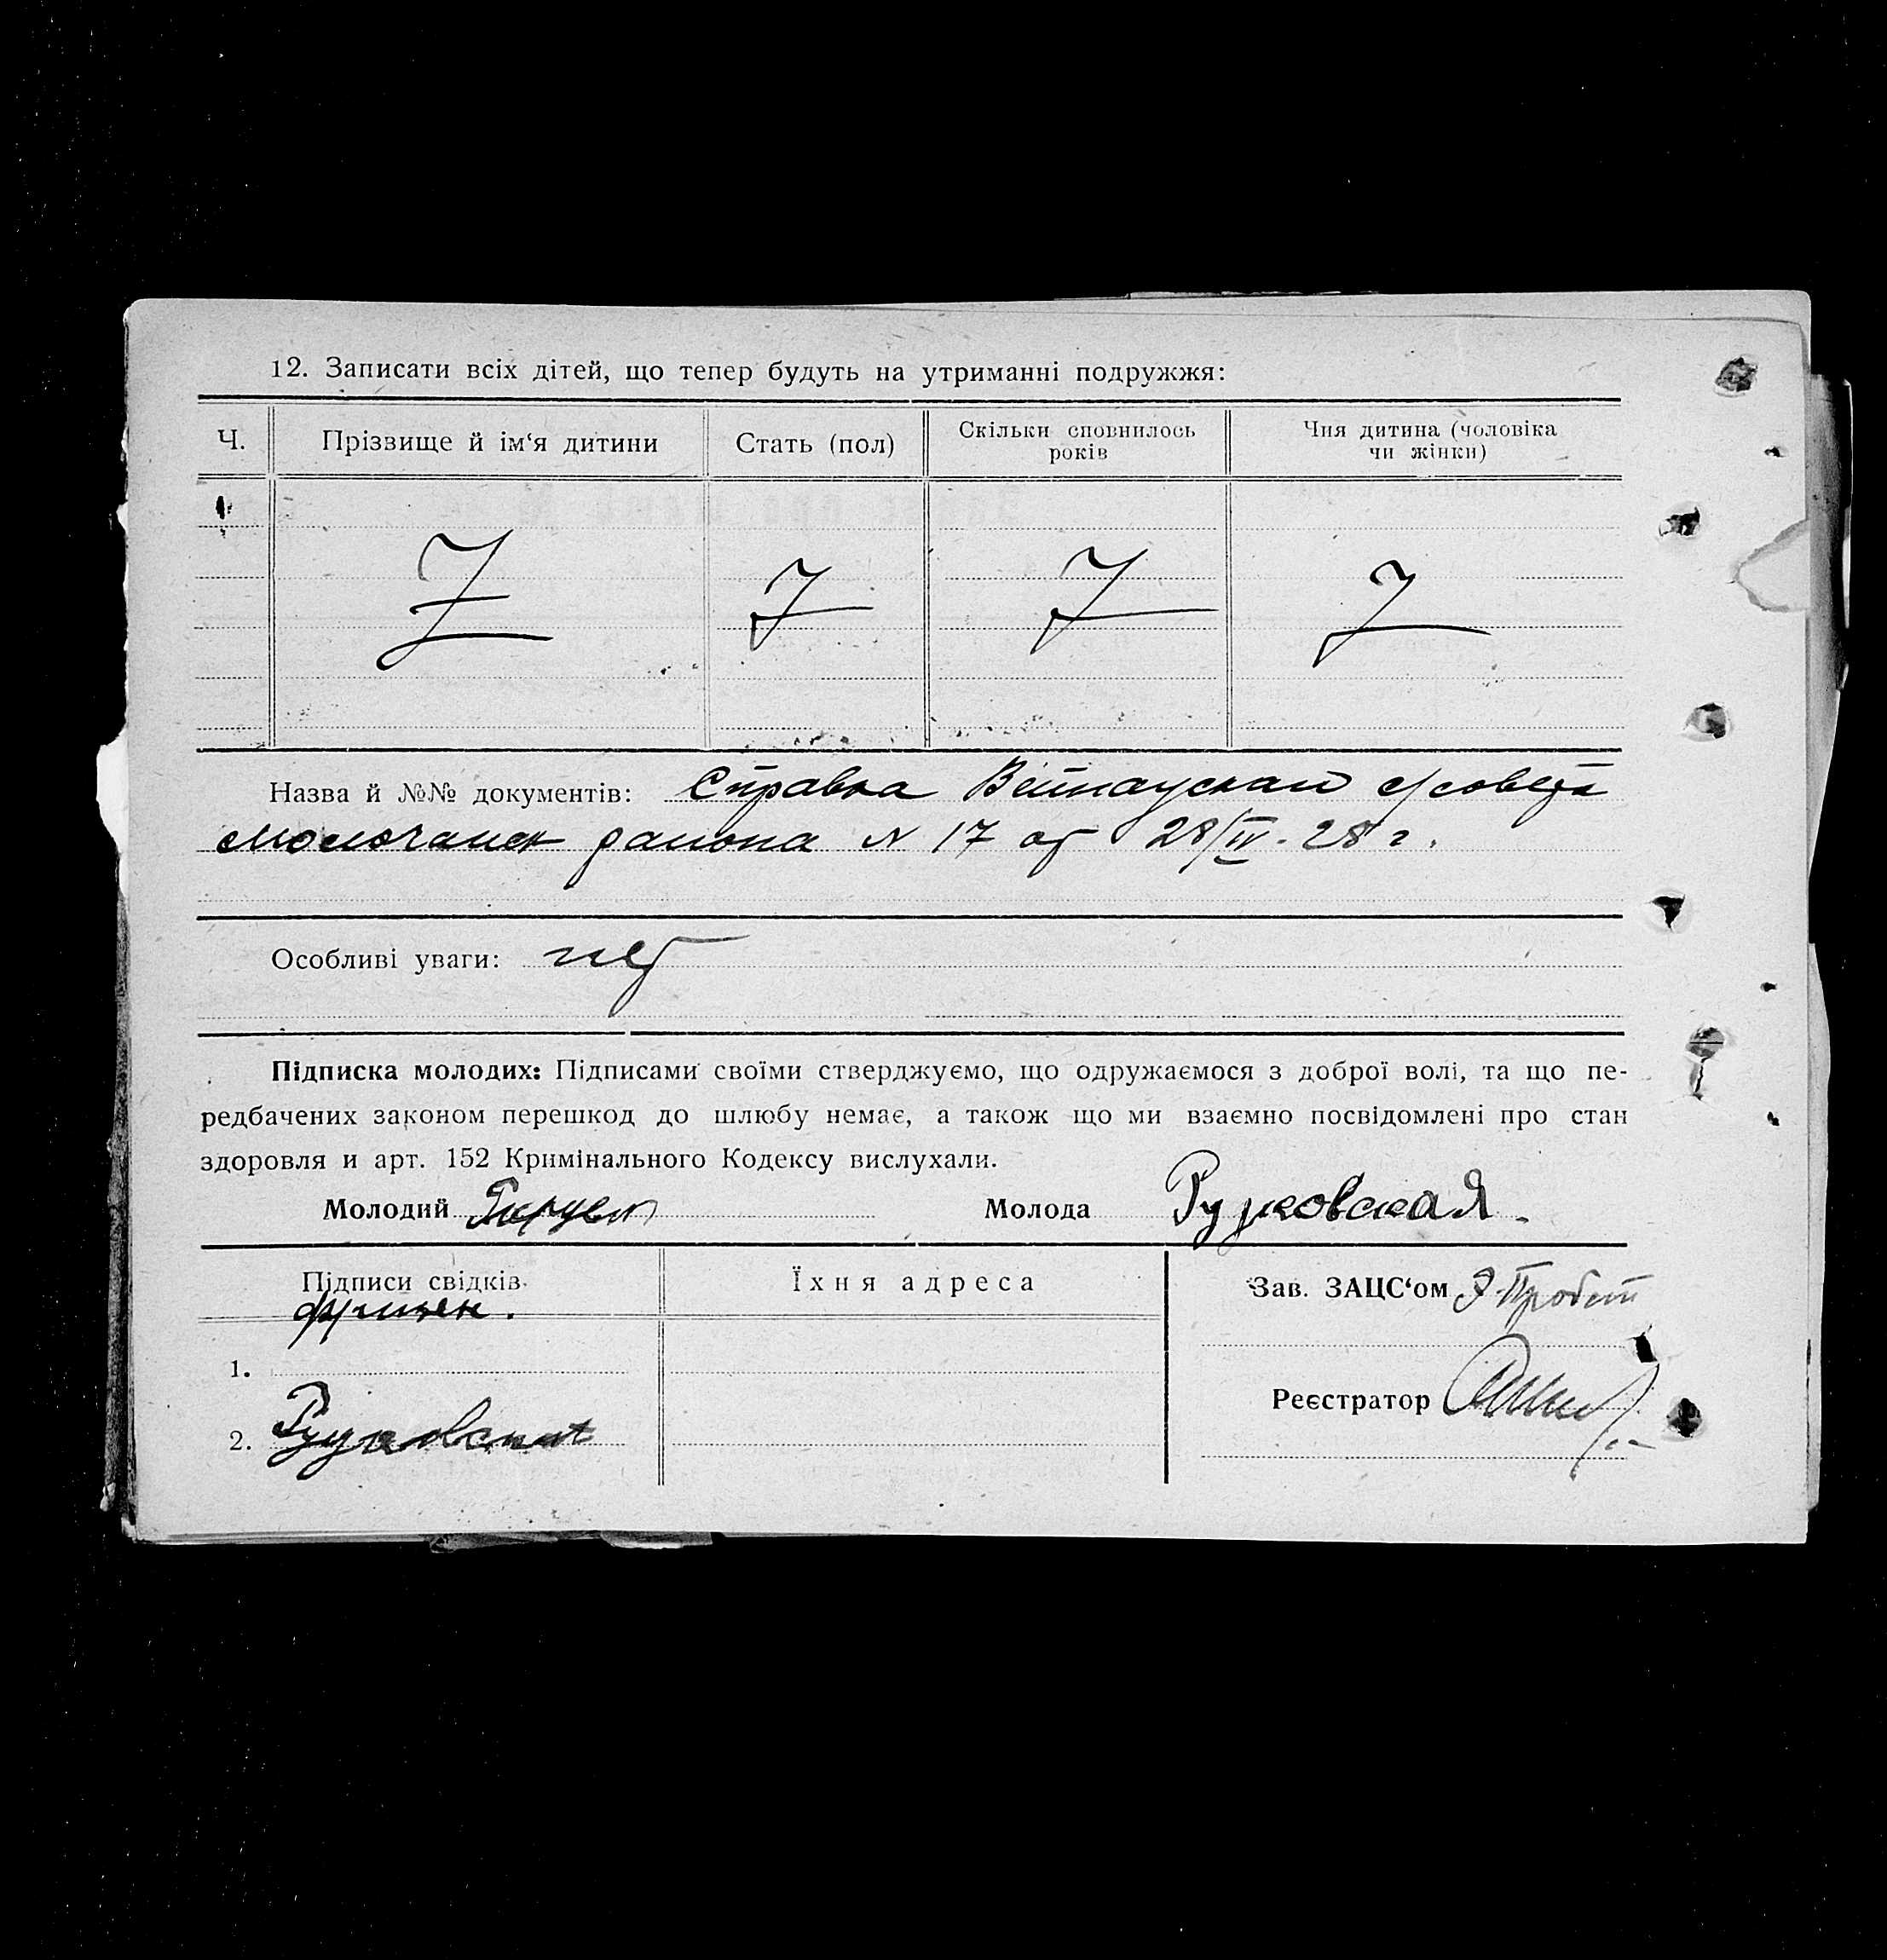 12. Записати всіх дітей, що тепер будуть на утриманні подружжя:
Ч.
Прізвище й ім‘я дитини
Стать (пол)
Скільки сповнилось
років
Чия дитина (чоловіка
чи жінки)
1.
Назва й №№ документів: Справка с/совета
района N 17 от 28/IV-28 г.
Особливі уваги: нет
Підписка молодих: Підписами своїми стверджуємо, що одружаємося з доброї волі, та що пе-
редбачених законом перешкод до шлюбу немає, а також що ми взаємно посвідомлені про стан
здоровля и арт. 152 Кримінального Кодексу вислухали.
Молодий
Молода Рудковская
Підписи свідків
Їхня адреса
Фризен.
1.
2. Рудковский
Зав. ЗАЦС‘ом Э. Пробст
Реєстратор